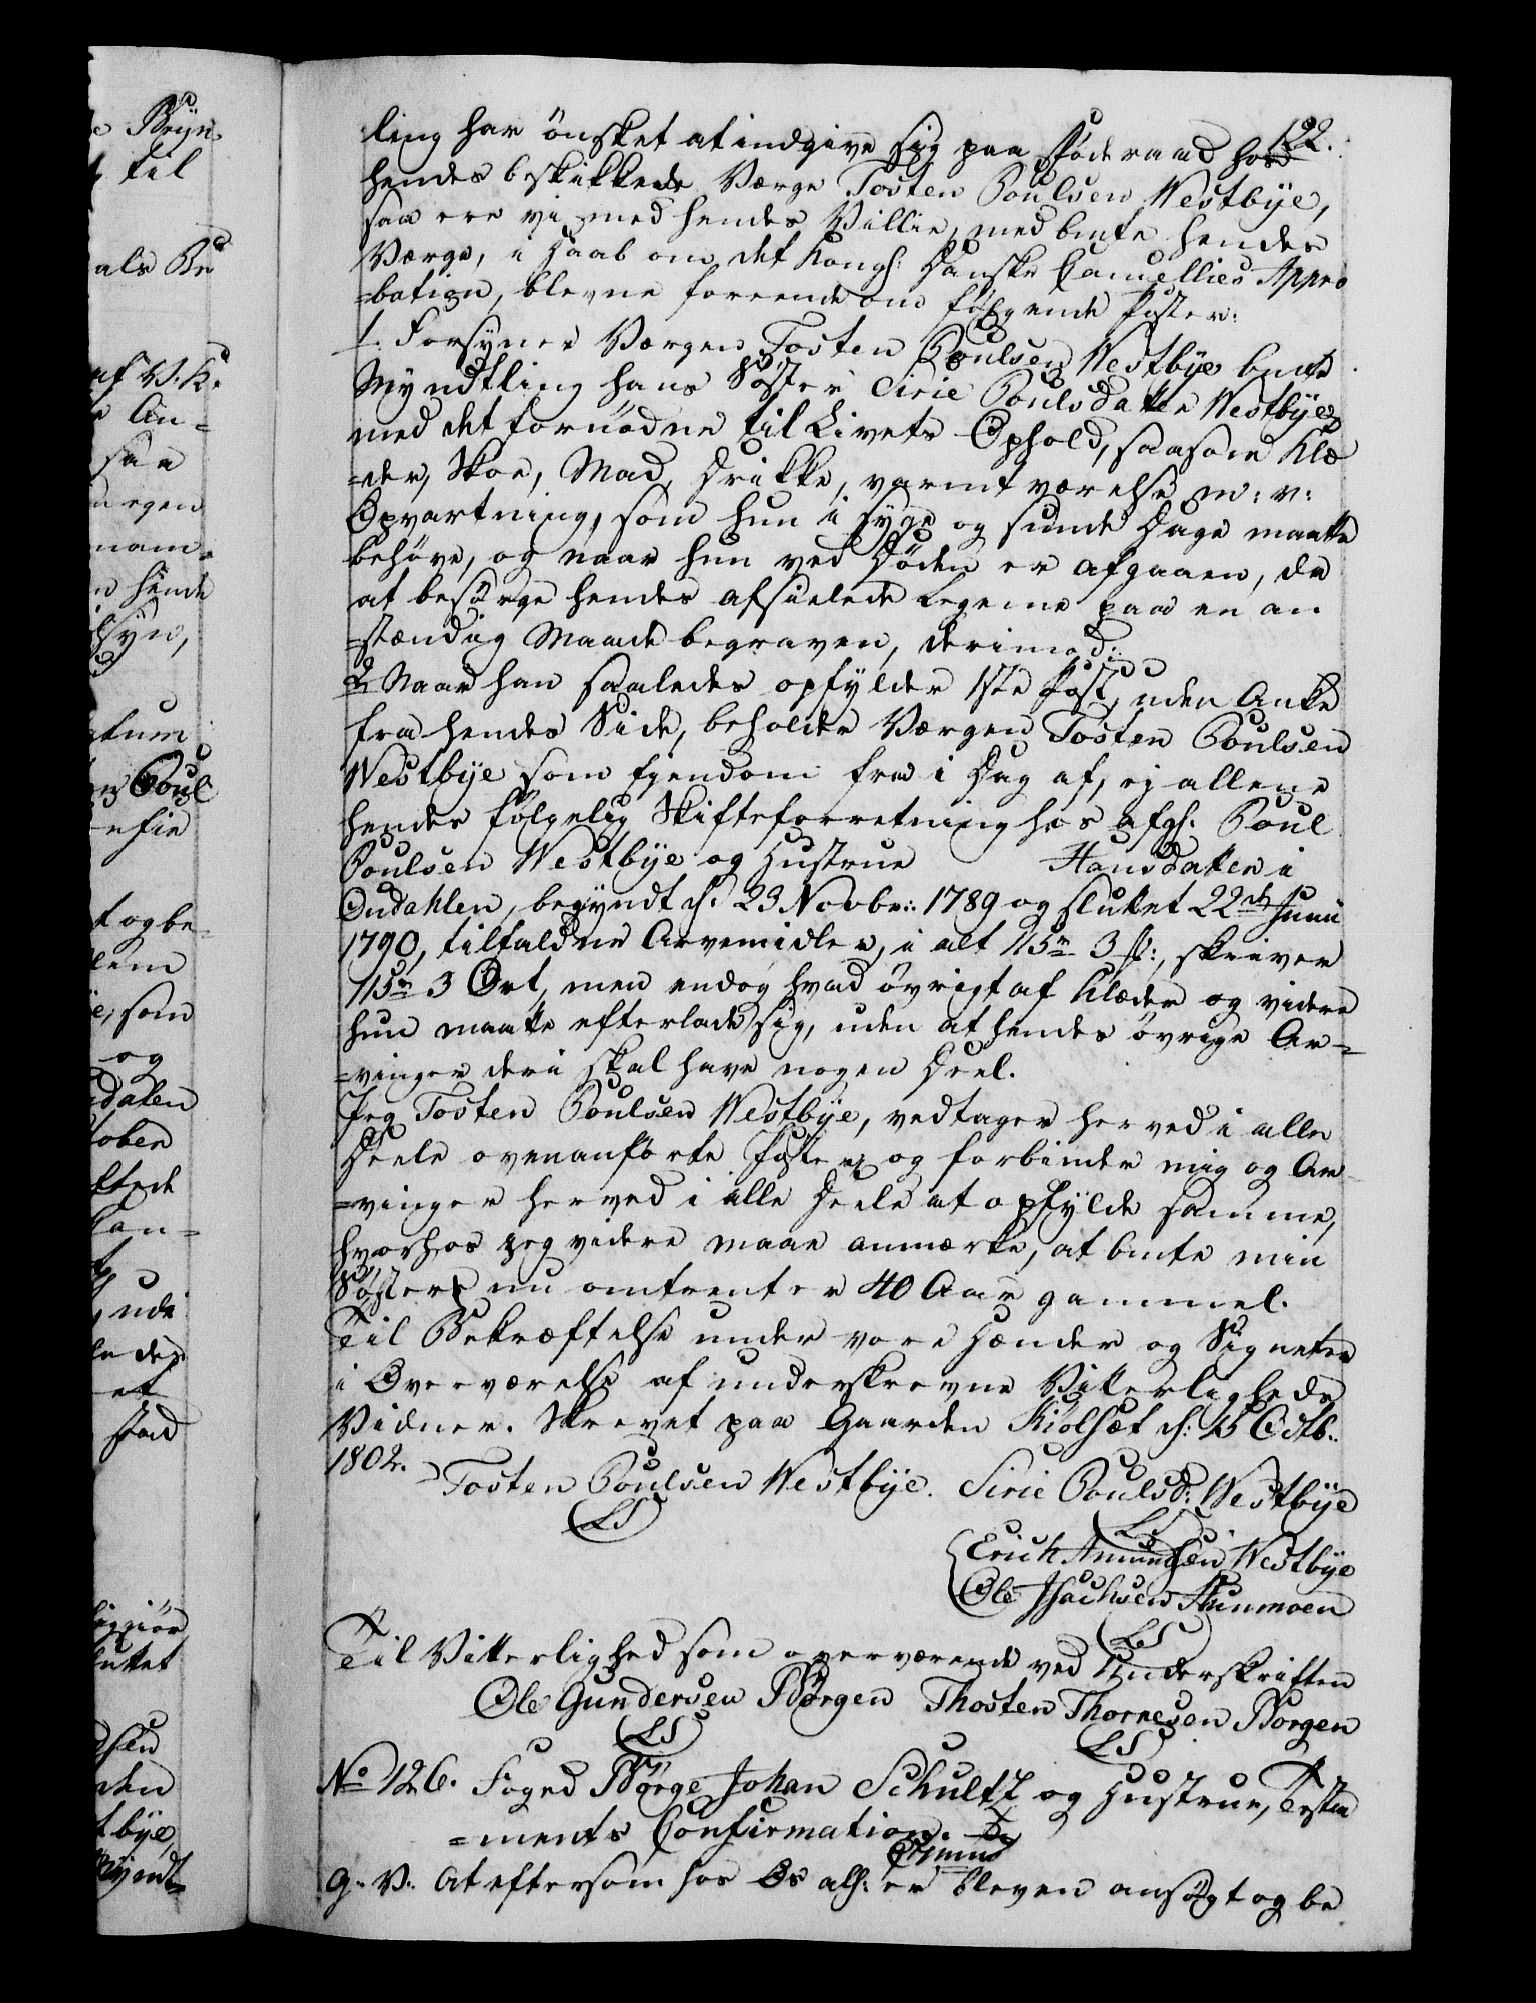 122.
ling har ønsket at indgive sig paa Føderaad hos
hendes beskikkede Værge Tosten Poulsen Westbÿe,
saa ere vi med hendes Villie, med bemte hendes
Værge, i Haab om det Kongl: Danske Cancellies Appro
=bation, blevne foreende om følgende Poster:
1. Forsyner Værgen Tosten Poulsen Westbÿe bemte
Myndtling hans Søster Sirie Poulsdatter Westbÿe
med det fornødne til Livets Ophold, saasom Klæ
=der, Skoe, Mad, Drikke, varmt værelse m: v:
Opvartning, som hun i syge og sunde Dage maatte
behøve, og naar hun ved Døden er afgaaen, da
at besørge hendes afsielede Legeme paa en an
=stændig Maade begraven, derimod:
2 Naar han saaledes opfylder 1ste Post, uden Anke
fra hendes Side, beholder Værgen Tosten Poulsen
Westbÿe som Ejendom fra i Dag af, ej allene
hendes følgelig Skifteforretning hos afg: Poul
Poulsen Westbÿe og Hustrue Hansdatter i
Oudahlen, begyndt d: 23 Novbr: 1789 og sluttet 22de Junii
1790, tilfaldne Arvemidler, i alt 115 rd 3 ß:, skriver
115 rd 3 Ort, men endog hvad øvrigt af Klæder og videre
hun maatte efterlade sig, uden at hendes øvrige Ar=
=vinger deri skal have nogen Deel.
Jeg Tosten Poulsen Westbÿe, vedtager herved i alle
Deele ovenanførte Poster og forbinder mig og Ar
=vinger herved i alle Deele at opfylde samme,
hvorhos jeg videre maae anmærke, at bemte min
Søster nu omtrent er 40 Aar gammel.
Til Bekræftelse under vore Hænder og Signeter
i Overværelse af underskrevne Vitterligheds
Vidner. Skrevet paa Gaarden Kiølsæt d: 15 Octb:
1802.
Tosten Poulsen Westbÿe. Sirie Poulsd: Westbÿe
(LS) (LS)
Erich Amundsen Westbÿe
Ole Isachsen Thunmoen
(LS)
Til Vitterlighed som overværende ved Underskriften
Ole Gundersen Borgen Thosten Thornesen Borgen
(LS) (LS)
No 126. Foged Børge Johan Schultz og Hustrue, Testa
=ments Confirmation.
G. V. At eftersom hos Os all: er bleven ansøgt og be